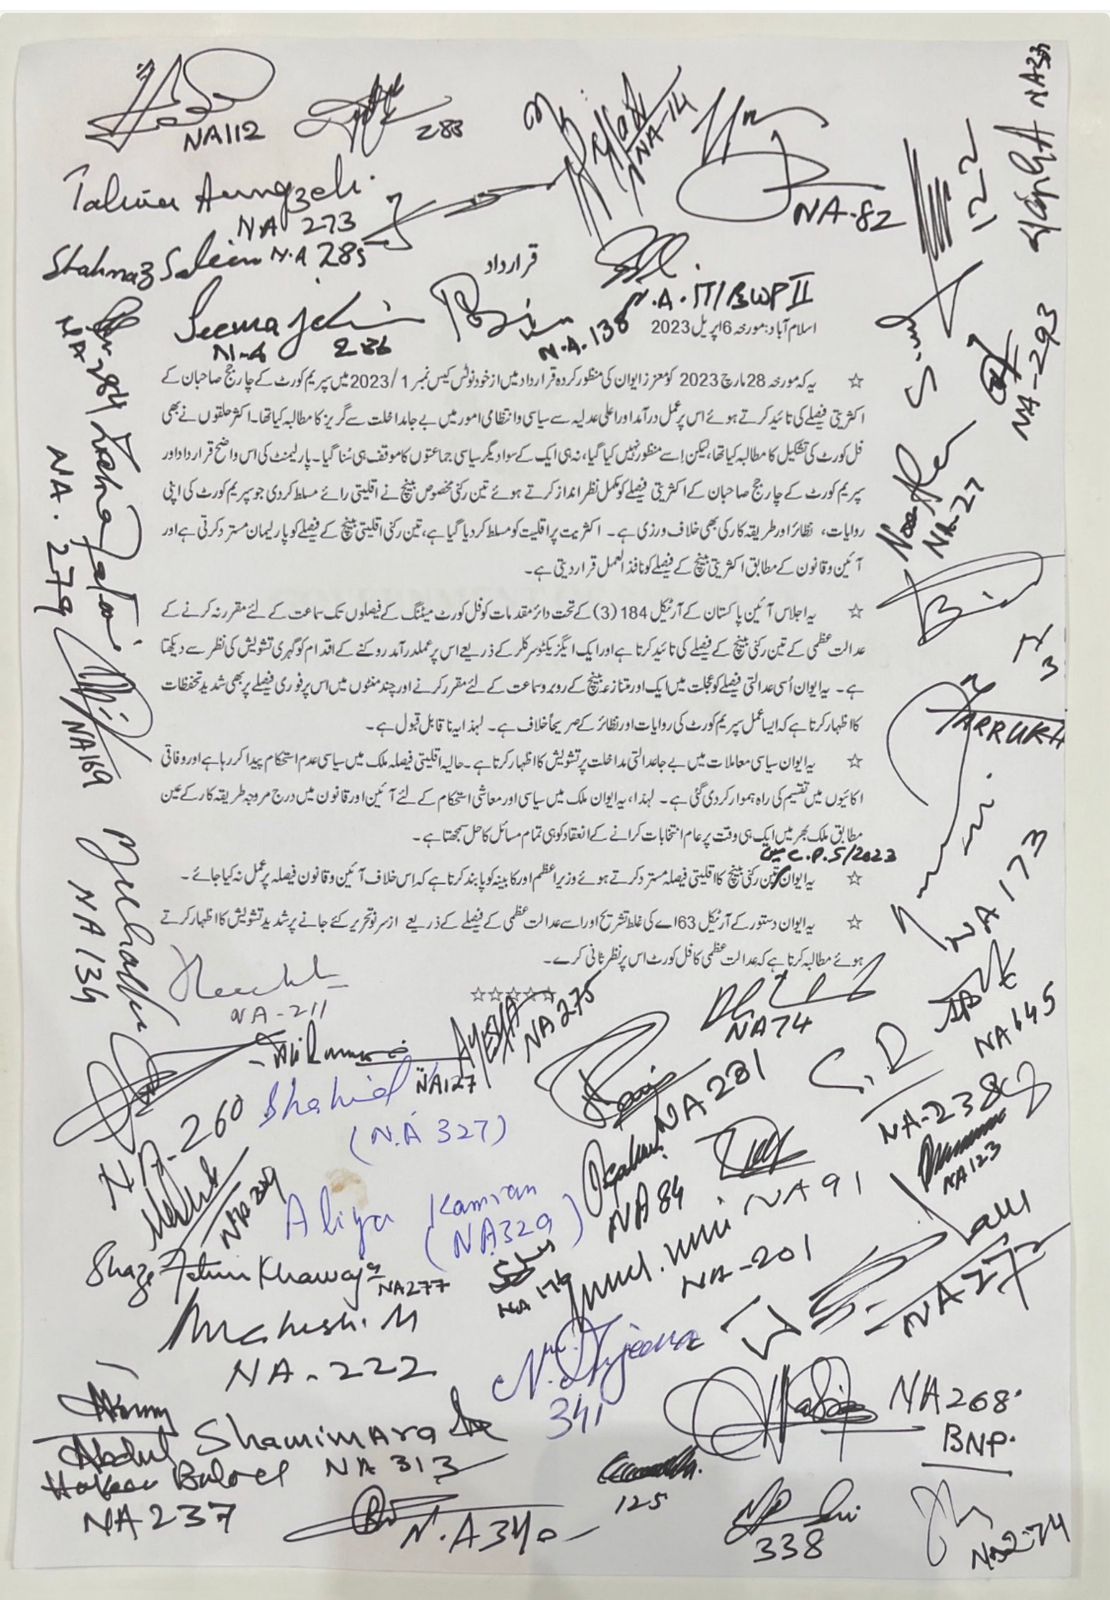 NA112
283
NA-14
NA-82
122
Tahira Aurangzeb.
NA 273
Shahnaz Saleem N.A 285
قرارداد
N.A. 171/BWP II
N.A. 138
286
اسلام آباد: مورخہ 6 اپریل 2023
☆ یہ کہ مورخہ 28 مارچ 2023 کو معزز ایوان کی منظور کردہ قرارداد میں از خود نوٹس کیس نمبر 1/2023 میں سپریم کورٹ کے چار جج صاحبان کے
اکثریتی فیصلے کی تائید کرتے ہوئے اس پر عمل درآمد اور اعلیٰ عدلیہ سے سیاسی و انتظامی امور میں بے جا مداخلت سے گریز کا مطالبہ کیا تھا۔ اکثر حلقوں نے بھی
فل کورٹ کی تشکیل کا مطالبہ کیا تھا، لیکن اِسے منظور نہیں کیا گیا، نہ ہی ایک کے سوا دیگر سیاسی جماعتوں کا موقف ہی سُنا گیا۔ پارلیمنٹ کی اس واضح قرارداد اور
سپریم کورٹ کے چار جج صاحبان کے اکثریتی فیصلے کو مکمل نظر انداز کرتے ہوئے تین رکنی مخصوص بینچ نے اقلیتی رائے مسلط کر دی جو سپریم کورٹ کی اپنی
روایات، نظائر اور طریقہ کار کی بھی خلاف ورزی ہے۔ اکثریت پر اقلیت کو مسلط کر دیا گیا ہے، تین رکنی اقلیتی بینچ کے فیصلے کو پارلیمان مسترد کرتی ہے اور
آئین و قانون کے مطابق اکثریتی بینچ کے فیصلے کو نافذ العمل قرار دیتی ہے۔
☆ یہ اجلاس آئین پاکستان کے آرٹیکل 184 (3) کے تحت دائر مقدمات کو فل کورٹ میٹنگ کے فیصلوں تک سماعت کے لئے مقرر نہ کرنے کے
عدالت عظمیٰ کے تین رکنی بینچ کے فیصلے کی تائید کرتا ہے اور ایک ایگزیکٹو سرکلر کے ذریعے اس پر عملدرآمد روکنے کے اقدام کو گہری تشویش کی نظر سے دیکھتا
ہے۔ یہ ایوان اُسی عدالتی فیصلے کو عجلت میں ایک اور متنازعہ بینچ کے روبرو سماعت کے لئے مقرر کرنے اور چند منٹوں میں اس پر فوری فیصلے پر بھی شدید تحفظات
کا اظہار کرتا ہے کہ ایسا عمل سپریم کورٹ کی روایات اور نظائر کے صریحاً خلاف ہے۔ لہذا یہ ناقابل قبول ہے۔
☆ یہ ایوان سیاسی معاملات میں بے جا عدالتی مداخلت پر تشویش کا اظہار کرتا ہے۔ حالیہ اقلیتی فیصلہ ملک میں سیاسی عدم استحکام پیدا کر رہا ہے اور وفاقی
اکائیوں میں تقسیم کی راہ ہموار کر دی گئی ہے۔ لہذا، یہ ایوان ملک میں سیاسی اور معاشی استحکام کے لئے آئین اور قانون میں درج مروجہ طریقہ کار کے عین
مطابق ملک بھر میں ایک ہی وقت پر عام انتخابات کرانے کے انعقاد کو ہی تمام مسائل کا حل سمجھتا ہے۔
C.P.5/2023 میں
☆ یہ ایوان تین رکنی بینچ کا اقلیتی فیصلہ مسترد کرتے ہوئے وزیراعظم اور کابینہ کو پابند کرتا ہے کہ اِس خلاف آئین و قانون فیصلہ پر عمل نہ کیا جائے۔
☆ یہ ایوان دستور کے آرٹیکل 63 اے کی غلط تشریح اور اسے عدالت عظمیٰ کے فیصلے کے ذریعے از سر نو تحریر کئے جانے پر شدید تشویش کا اظہار کرتے
ہوئے مطالبہ کرتا ہے کہ عدالت عظمیٰ کا فل کورٹ اس پر نظر ثانی کرے۔
☆☆☆☆☆
NA-293
NA-27
FARRUKH
NA 173
NA 284
NA. 279
NA169
NA134
NA-211
AYESYA
NA275
NA74
NA145
NA127
Shahid
(N.A 327)
NA-260
NA281
NA-238
NA123
NA84
NA91
Aliya Kamran
(NA329)
NA-201
NA277
NA-222
341
NA 268.
BNP.
Abdul
NA237
Shamimara
NA 313
N.A 340
125
338
NA274